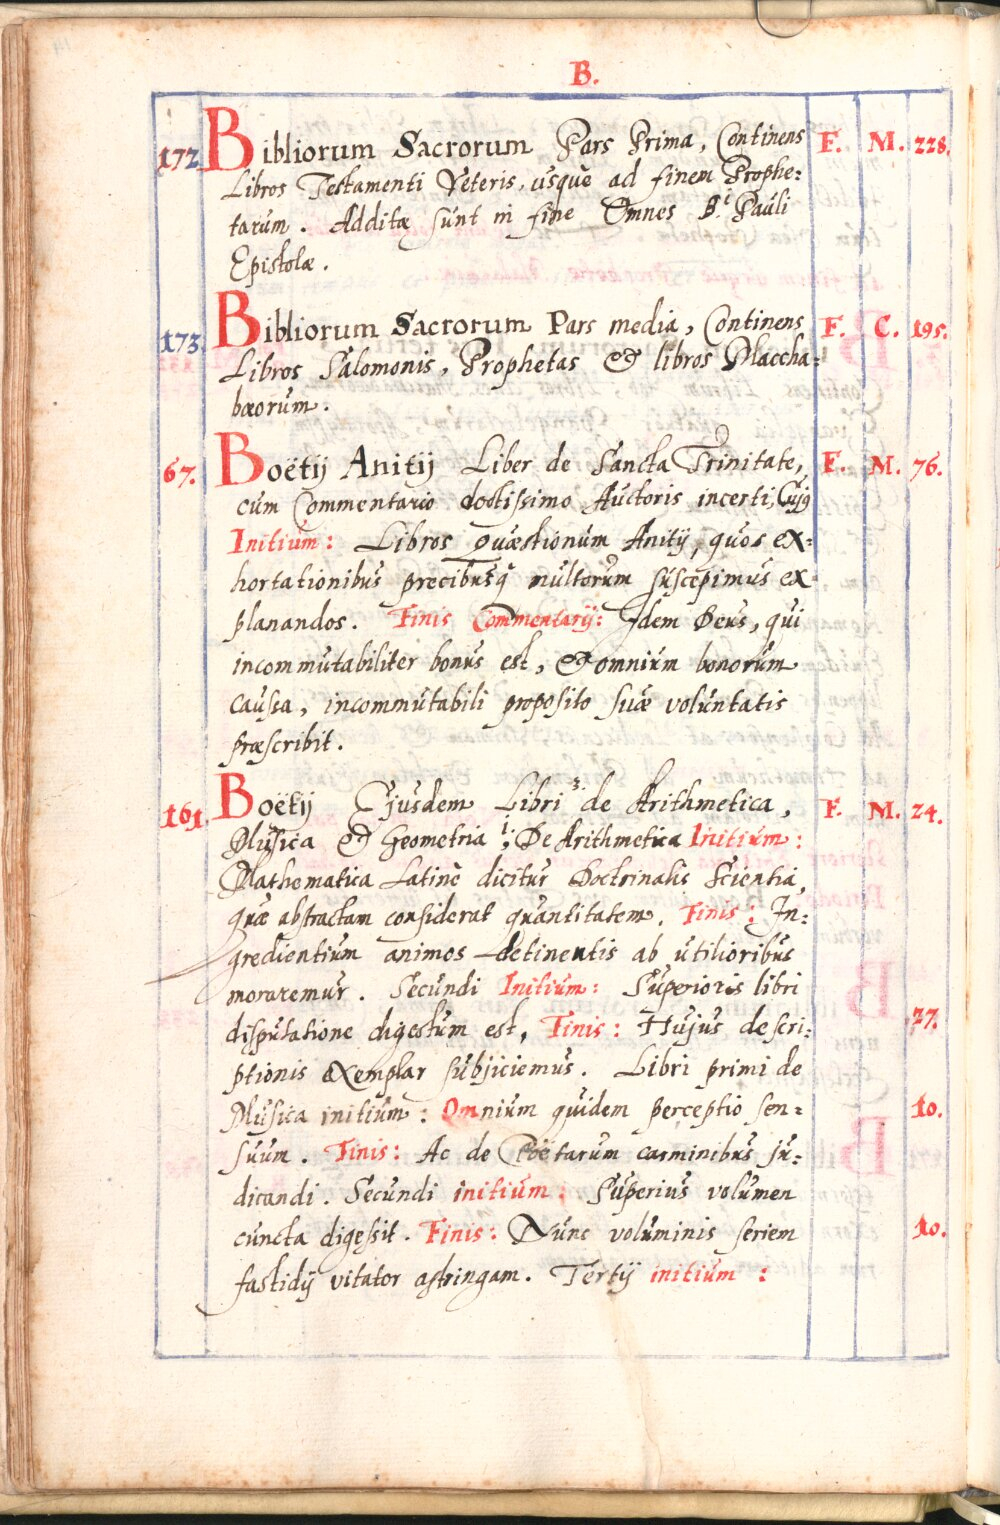 B.
172. Bibliorum Sacrorum Pars Prima, Continens F. M. 228.
Libros Testamenti Veteris, usquè ad finem Prophe:
tarum. Additæ sunt in fine Omnes B.ti Pauli
Epistolæ.
173. Bibliorum Sacrorum Pars media, Continens F. C. 195.
Libros Salomonis, Prophetas & libros Maccha:
bæorum.
67. Boëtij Anitij Liber de Sancta Trinitate, F. M. 76.
cum Commentario doctissimo Auctoris incerti, Cujq
Initium: Libros quæstionum Anitij, quos ex:
hortationibus precibusq̃ multorum suscepimus ex:
planandos. Finis Commentarij: Idem Deus, qui
incommutabiliter bonus est, & omnium bonorum
causa, incommutabili proposito suæ voluntatis
præscribit.
161. Boëtij Ejusdem Libri 3. de Arithmetica, F. M. 24.
Musica & Geometria; De Arithmetica Initium:
Mathematica Latinè dicitur Doctrinalis Scientia,
quæ abstractam considerat quantitatem. Finis: In:
gredientium animos detinentis ab utilioribus
moraremur. Secundi Initium: Superioris libri
disputatione digestum est, Finis: Hujus descri: 27.
ptionis exemplar subjiciemus. Libri primi de
Musica initium: Omnium quidem perceptio sen: 10.
suum. Finis: Ac de Poëtarum carminibus ju:
dicandi. Secundi initium: Superius volumen
cuncta digessit. Finis: Nunc voluminis seriem 10.
fastidij vitator astringam. Tertij initium: